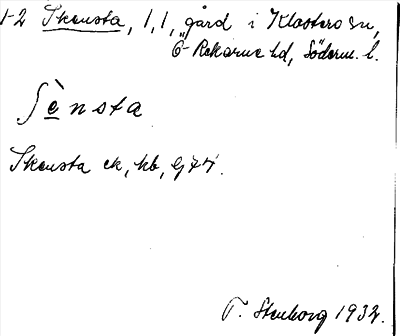 1-2 Skensta, 1,1, gård i Klosters sn,
Ö Rekarne hd, Söderm. l.
ʃènsta
Skensta ek, kb, gjk.
T. Stenborg 1932.